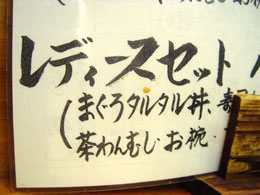 レディースセット
(まぐろタルタル丼、寿司
茶わんむし・お椀